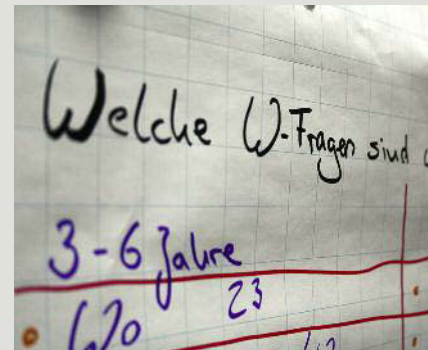 Welche W-Fragen sind
3-6 Jahre
Wo 23